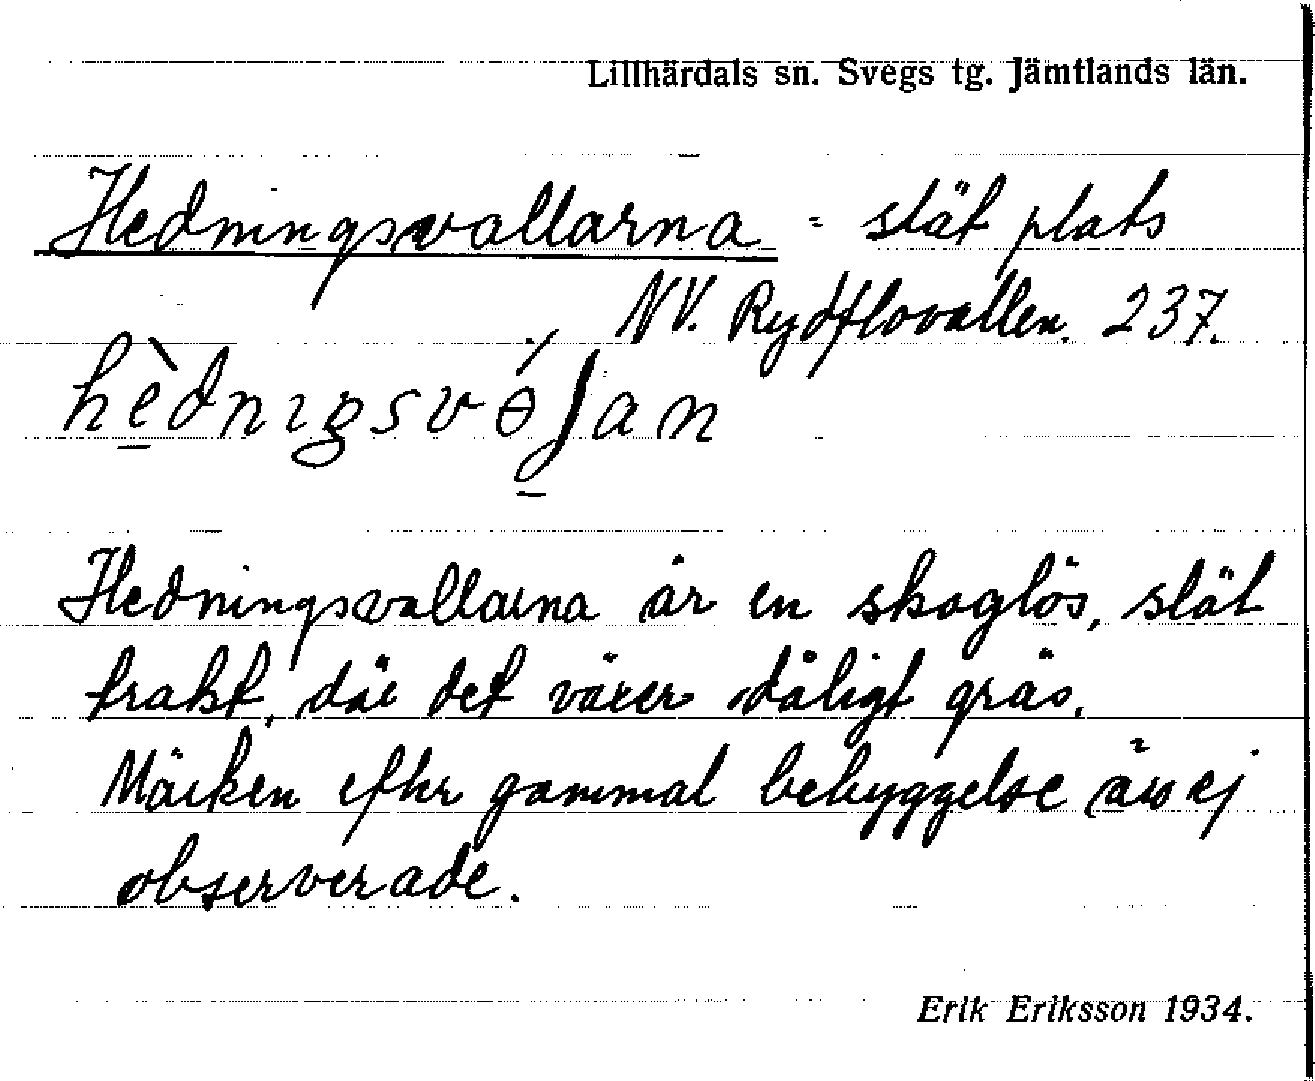 Lillhärdals sn. Svegs tg. Jämtlands län.
Hedningsvallarna = slät plats
NV. Rydflovallen. 237.
hèdnıgsvɵ́ʃan
Hedningsvallarna är en skoglös, slät
trakt, där det växer dåligt gräs.
Märken efter gammal bebyggelse äro ej
observerade.
Erik Eriksson 1934.